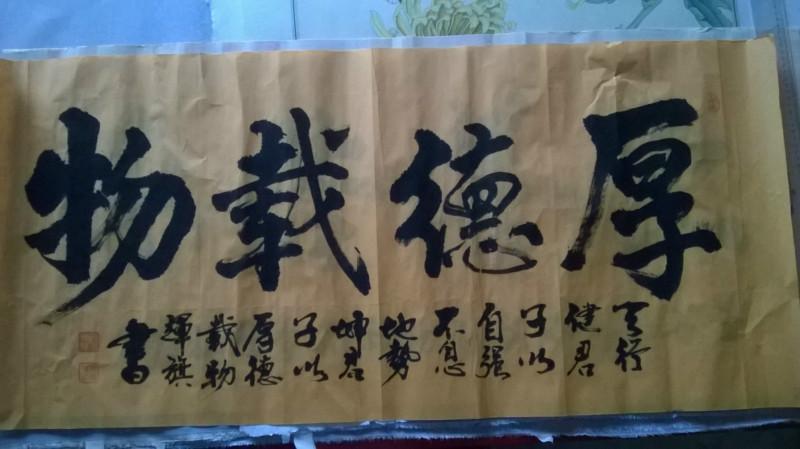 厚德載物
天行
健君
子以
自强
不息
地勢
坤君
子以
厚德
載物
輝旗
書